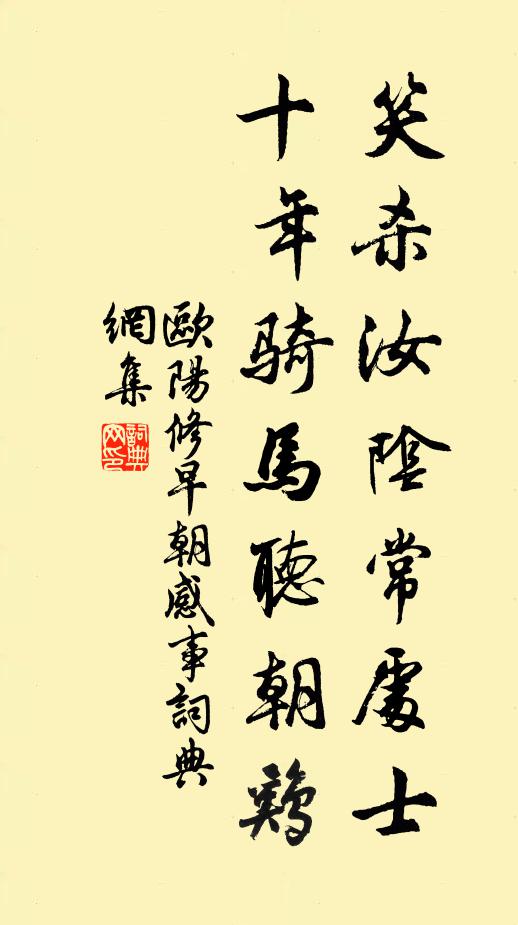 笑杀汝陰常處士
十年騎馬聽朝鷄
歐陽修早朝感事詞典
網集
詞典
网印